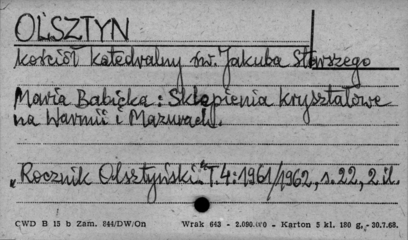 OLSZTYN
kościół katedralny św. Jakuba Starszego
Maria Babicka: Sklepienia kryształowe
na Warmii i Mazurach.
„Rocznik Olsztyński" T.4:1961/1962, s.22, 2 il.
CWD B 15 b Zam. 844/DW/On Wrak 643 - 2.090.000 - Karton 5 kl. 180 g. - 30.7.68.